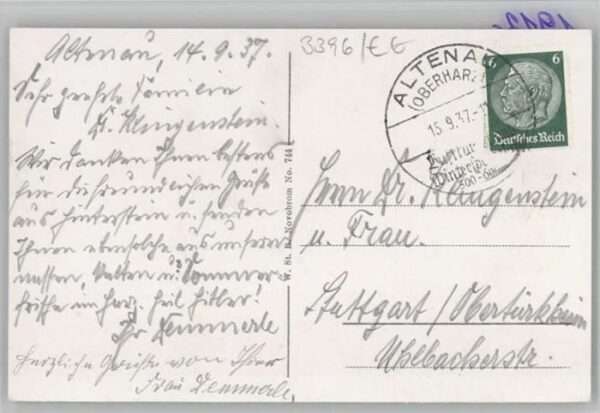 Altenau, 14.9.37.
Sehr geehrte Familie
Dr. Klingenstein.
Wir danken Ihnen bestens
für die freundlichen Grüße
aus Hinterstein u. senden
Ihnen ebensolche aus unserer
nassen, kalten u. Sommer-
frische im Harz. Heil Hitler!
Ihr Demmerle
Herzliche Grüße von Ihrer
Frau Demmerle.
W. St. B. Novobrom No. 744
3396/EE
ALTENAU
(OBERHARZ)
15.9.37
6 6
Deutsches Reich
Herrn Dr. Klingenstein
u. Frau.
Stuttgart / Obertürkheim
Uhlbacherstr.